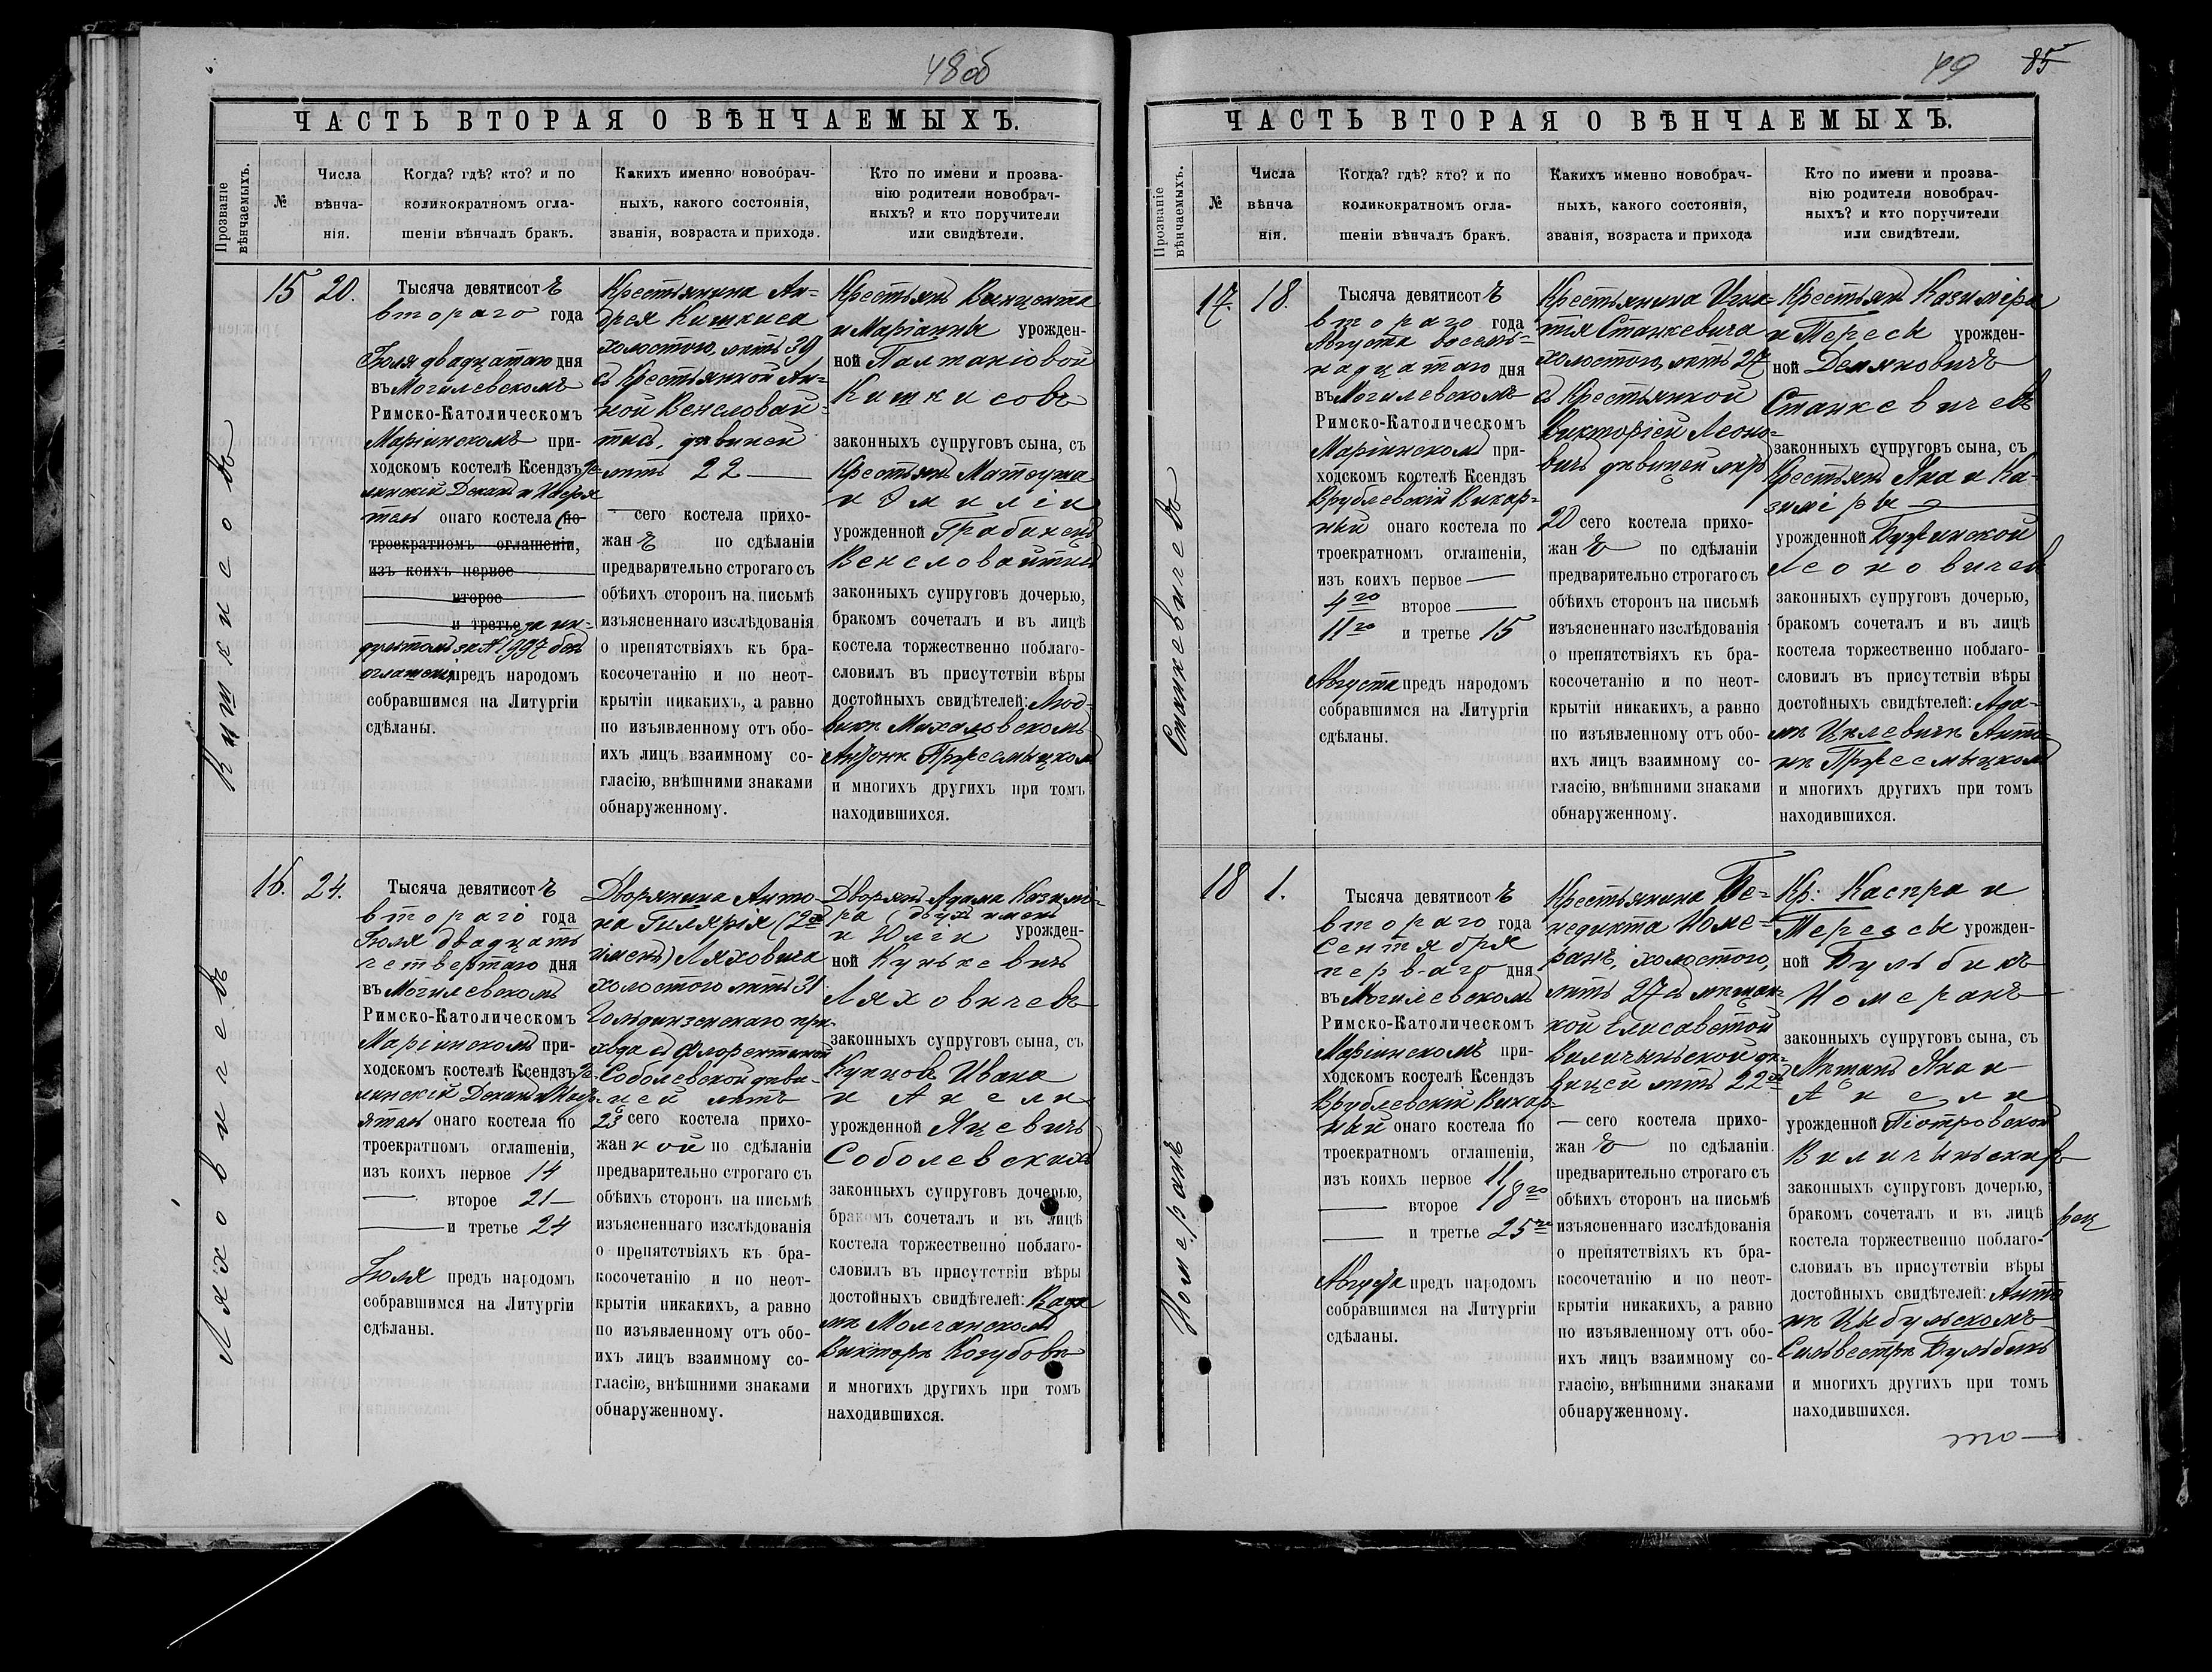 48об
ЧАСТЬ ВТОРАЯ О ВѢНЧАЕМЫХЪ.
Прозваніе вѣнчаемыхъ.
№
Числа вѣнча-нія.
Когда? гдѣ? кто? и по
коликократномъ огла-
шеніи вѣнчалъ бракъ.
Какихъ именно новобрач-
ныхъ, какого состоянія,
званія, возраста и прихода.
Кто по имени и прозва-
нію родители новобрач-
ныхъ? и кто поручители
или свидѣтели.
Кишкисовъ
15
20.
Тысяча девятисотъ
второго года
Іюля двадцатаго дня
въ Могилевскомъ
Римско-Католическомъ
Маріинскомъ при-
ходскомъ костелѣ Ксендзъ
Деканъ и Насто
тель онаго костела по
троекратномъ оглашеніи,
изъ коихъ первое
второе
и третье за ин-
дультомъ за № 1997 безъ
оглашенія предъ народомъ
собравшимся на Литургіи
сдѣланы.
Крестьянина Ан-
дрея Кишкиса
холостого, лѣтъ 39
съ Крестьянкой Ан-
ной Венсловай-
тис, дѣвицей
лѣтъ 22
сего костела прихо-
жанъ по сдѣланіи
предварительно строгаго съ
обѣихъ сторонъ на письмѣ
изъясненнаго изслѣдованія
о препятствіяхъ къ бра-
косочетанію и по неот-
крытіи никакихъ, а равно
по изъявленному отъ обо-
ихъ лицъ взаимному со-
гласію, внѣшними знаками
обнаруженному.
Крестьянъ Винцента
и Маріанны урожден-
ной
Кишкисовъ
законныхъ супруговъ сына, съ
Крестьянъ Матеуша
и Эмиліи
урожденной
законныхъ супруговъ дочерью,
бракомъ сочеталъ и въ лицѣ
костела торжественно поблаго-
словилъ въ присутствіи вѣры
достойныхъ свидѣтелей: Люд-
викѣ Михаловскомъ
Антонѣ Пржесмыцкомъ
и многихъ другихъ при томъ
находившихся.
Ляховичевъ
16.
24.
Тысяча девятисотъ
второго года
Іюля двадцать
четвертаго дня
въ Могилевскомъ
Римско-Католическомъ
Маріинскомъ при-
ходскомъ костелѣ Ксендзъ
Деканъ и Насто-
ятель онаго костела по
троекратномъ оглашеніи,
изъ коихъ первое 14
второе 21
и третье 24
Іюля предъ народомъ
собравшимся на Литургіи
сдѣланы.
Дворянина Анто-
на Гилярія (2хъ
именъ) Ляховича
холостого лѣтъ 31
при-
хода съ Флорентиной
Соболевской дѣви-
цей лѣтъ
23 сего костела прихо-
жанкой по сдѣланіи
предварительно строгаго съ
обѣихъ сторонъ на письмѣ
изъясненнаго изслѣдованія
о препятствіяхъ къ бра-
косочетанію и по неот-
крытіи никакихъ, а равно
по изъявленному отъ обо-
ихъ лицъ взаимному со-
гласію, внѣшними знаками
обнаруженному.
Дворянъ Адама Казимі-
ра (двухъ именъ
и Юліи урожден-
ной Кунькевичъ
Ляховичевъ
законныхъ супруговъ сына, съ
Купцовъ Ивана
и Анели
урожденной Яцевичъ
Соболевскихъ
законныхъ супруговъ дочерью,
бракомъ сочеталъ и въ лицѣ
костела торжественно поблаго-
словилъ въ присутствіи вѣры
достойныхъ свидѣтелей:
Молчанскомъ
Викторѣ Козубовѣ
и многихъ другихъ при томъ
находившихся.
49 85
ЧАСТЬ ВТОРАЯ О ВѢНЧАЕМЫХЪ.
Прозваніе вѣнчаемыхъ.
№
Числа вѣнча нія.
Когда? гдѣ? кто? и по
коликократномъ огла-
шеніи вѣнчалъ бракъ.
Какихъ именно новобрач-
ныхъ, какого состоянія,
званія, возраста и прихода
Кто по имени и прозва-
нію родители новобрач-
ныхъ? и кто поручители
или свидѣтели.
Станкевичевъ
17.
18.
Тысяча девятисотъ
второго года
Августа восем-
надцатаго дня
въ Могилевскомъ
Римско-Католическомъ
Маріинскомъ при-
ходскомъ костелѣ Ксендзъ
Врублевскій Викар-
ный онаго костела по
троекратномъ оглашеніи,
изъ коихъ первое
4го второе
11го и третье 15
Августа предъ народомъ
собравшимся на Литургіи
сдѣланы.
Крестьянина Игна-
тія Станкевича
холостого, лѣтъ 27
съ Крестьянкой
Викторіей Леоно-
вичъ дѣвицей лѣтъ
20 сего костела прихо-
жанъ по сдѣланіи
предварительно строгаго съ
обѣихъ сторонъ на письмѣ
изъясненнаго изслѣдованія
о препятствіяхъ къ бра-
косочетанію и по неот-
крытіи никакихъ, а равно
по изъявленному отъ обо-
ихъ лицъ взаимному со-
гласію, внѣшними знаками
обнаруженному.
Крестьянъ Казиміра
и Тересы урожден-
ной Демяновичъ
Станкевичевъ
законныхъ супруговъ сына, съ
Крестьянъ Яна и Ка-
зиміры
урожденной Дужинской
Леоновичей
законныхъ супруговъ дочерью,
бракомъ сочеталъ и въ лицѣ
костела торжественно поблаго-
словилъ въ присутствіи вѣры
достойныхъ свидѣтелей: Ада-
мѣ Цѣлевичѣ Анто-
нѣ Пржесмыцкомъ
и многихъ другихъ при томъ
находившихся.
Номеранъ
18
1.
Тысяча девятисотъ
второго года
Сентября
перваго дня
въ Могилевскомъ
Римско-Католическомъ
Маріинскомъ при-
ходскомъ костелѣ Ксендзъ
Врублевскій Викар-
ный онаго костела по
троекратномъ оглашеніи,
изъ коихъ первое 11
второе 18го
и третье 25го
Августа предъ народомъ
собравшимся на Литургіи
сдѣланы.
Крестьянина Бе-
недикта Номе-
ранъ, холостого,
лѣтъ 27 съ мѣщан-
кой Елисаветой
Виличыньской дѣ-
вицей лѣтъ 22хъ
сего костела прихо-
жанъ по сдѣланіи
предварительно строгаго съ
обѣихъ сторонъ на письмѣ
изъясненнаго изслѣдованія
о препятствіяхъ къ бра-
косочетанію и по неот-
крытіи никакихъ, а равно
по изъявленному отъ обо-
ихъ лицъ взаимному со-
гласію, внѣшними знаками
обнаруженному.
Кр: Каспра и
Терезы урожден-
ной Бульбикъ
Номеранъ
законныхъ супруговъ сына, съ
Мѣщанъ Яна и
Анели
урожденной Піотровской
Виличыньскихъ
законныхъ супруговъ дочерью,
бракомъ сочеталъ и въ лицѣ
костела торжественно поблаго-
словилъ въ присутствіи вѣры
достойныхъ свидѣтелей: Анто
нѣ Цыбульскомъ
Сильвестрѣ Бульбикѣ
и многихъ другихъ при томъ
находившихся.